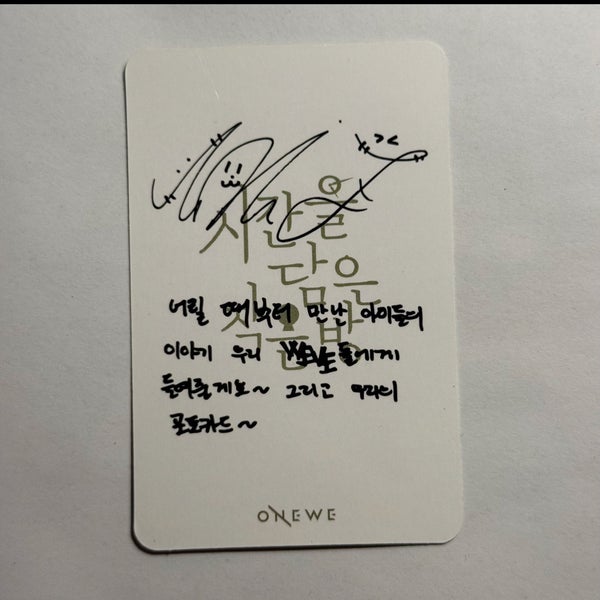 시간을
담은
작은방
어릴 때부터 만난 아이들의
이야기 우리 WEVE들에게
들려줄게보~ 그리고 우리의
포토카드~
ONEWE